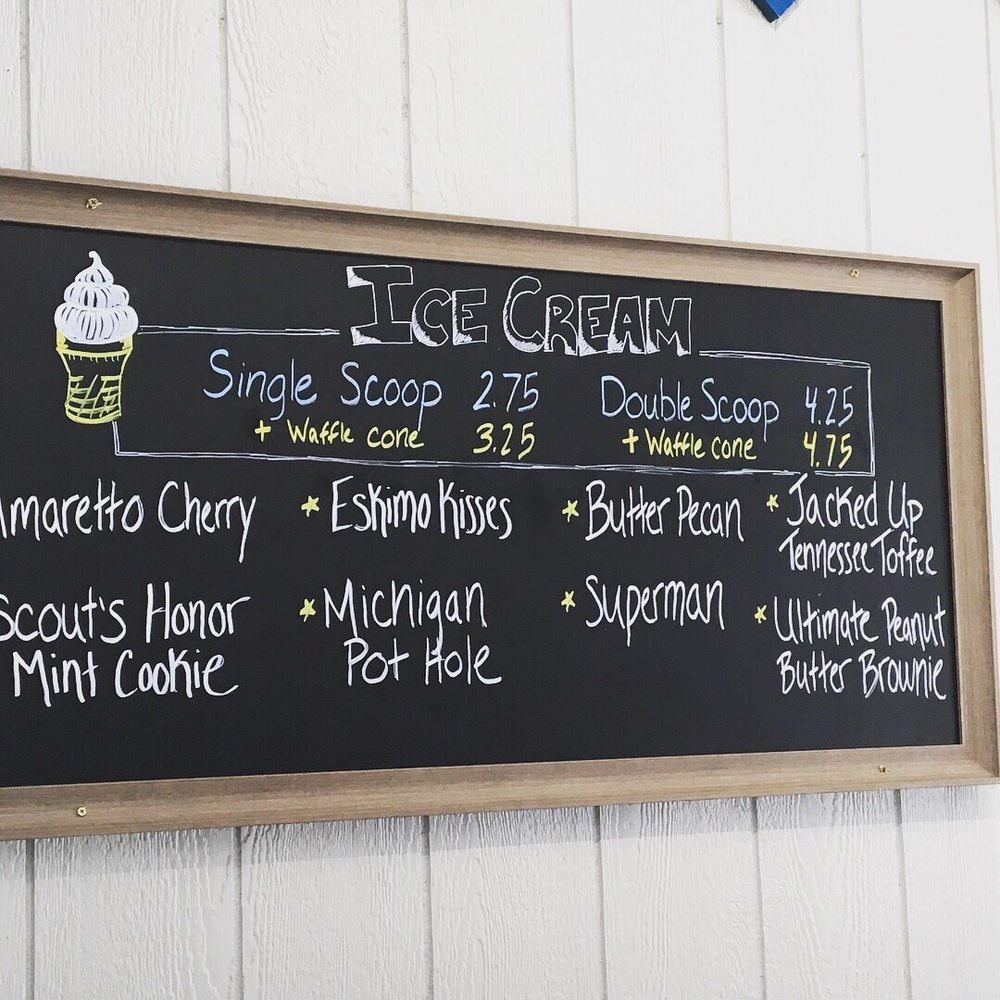 ICE CREAM
Single Scoop 2.75 Double Scoop 4.25
+ Waffle cone 3.25 + Waffle cone 4.75
Amaretto Cherry * Eskimo Kisses * Butter Pecan * Jacked Up
Tennessee Toffee
Scout's Honor * Michigan * Superman * Ultimate Peanut
Mint Cookie Pot Hole Butter Brownie